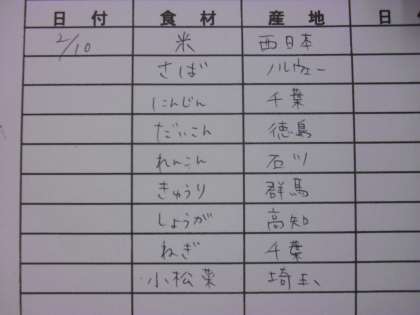 日付 食材 産地 日
2/10 米 西日本
さば ノルウェー
にんじん 千葉
だいこん 徳島
れんこん 石川
きゅうり 群馬
しょうが 高知
ねぎ 千葉
小松菜 埼玉